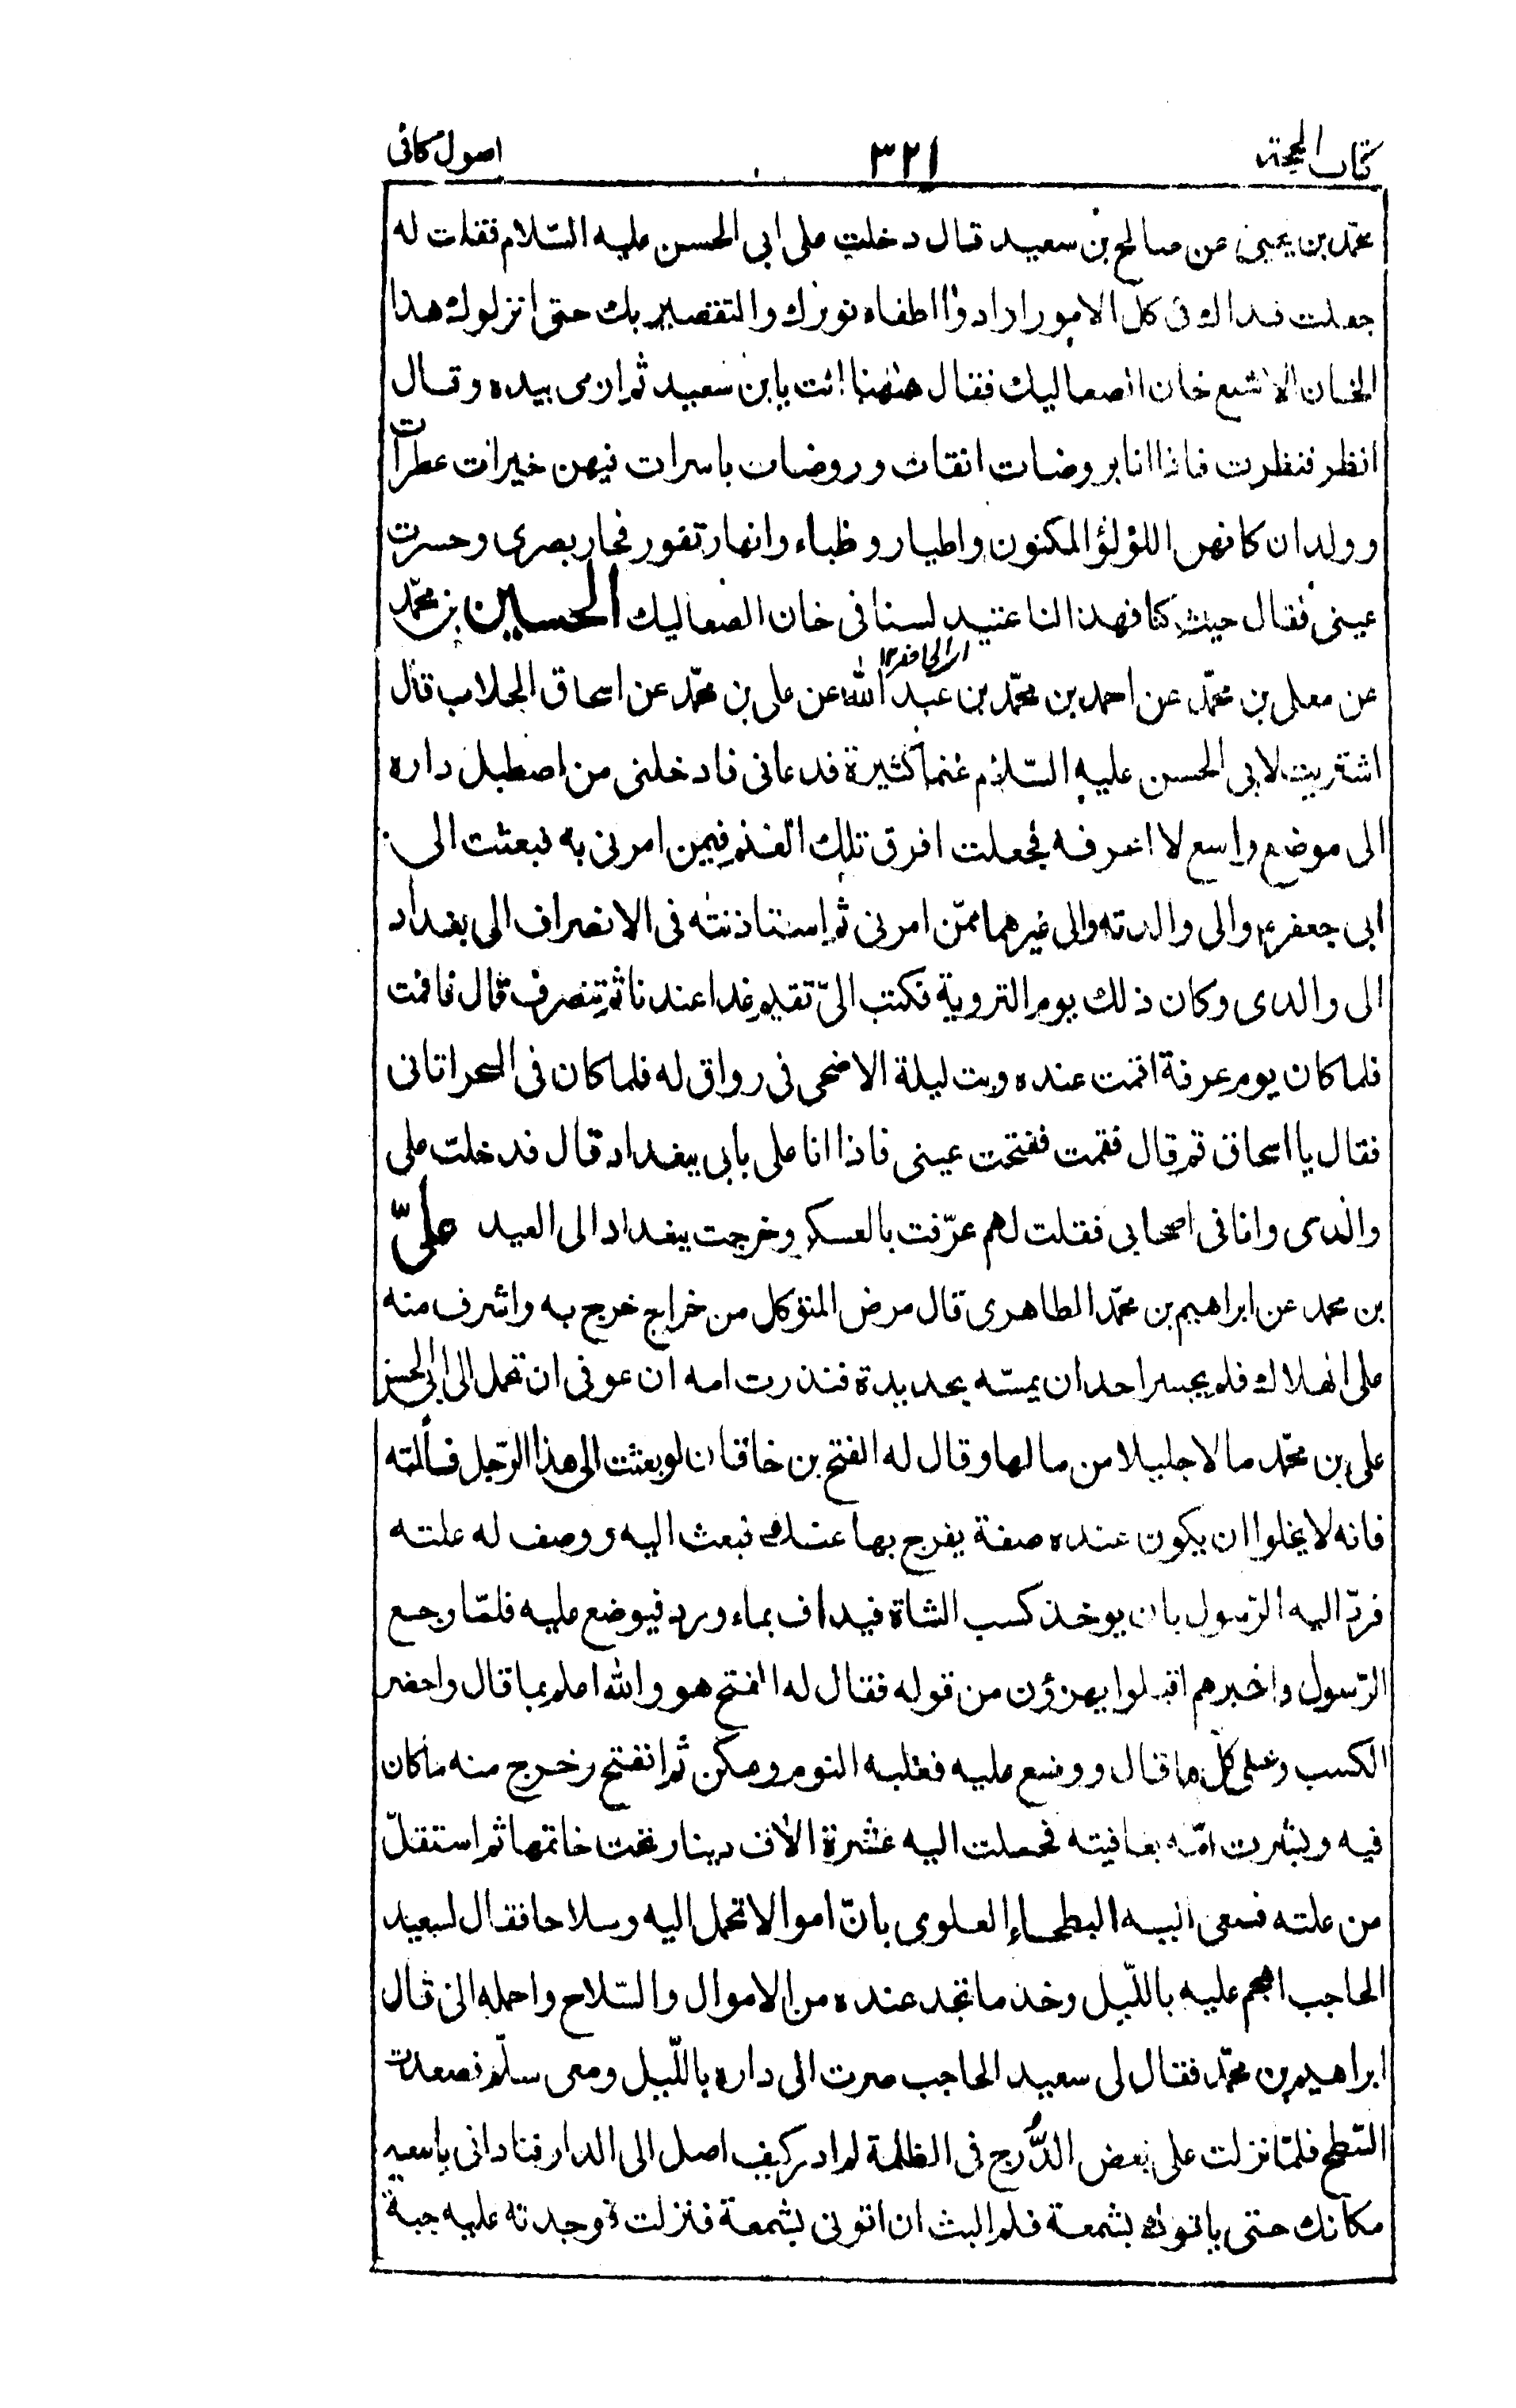 كتاب الحجة
٣٢١
اصول كافى
محمّد بن يحيى عن صالح بن سعيد قال دخلت على ابى الحسن عليه السّلام فقلت له
جعلت فداك فى كل الامور ارادوا اطفاء نورك والتقصير بك حتى انزلوك هذا
الخان الاشنع خان الصعاليك فقال ههنا انت يابن سعيد ثم اومى بيده وقال
انظر فنظرت فاذا انا بروضات انقات وروضات باسرات فيهن خيرات عطرات
وولدان كانهن اللؤلؤ المكنون واطيار وظباء وانهار تفور فحار بصرى وحسرت
عينى فقال حيث كنا فهذا لنا عتيد لسنا فى خان الصعاليك الحسين بن محمّد
عن معلى بن محمّد عن احمد بن محمّد بن عبد الله عن على بن محمّد عن اسحاق الجلاب قال
اشتريت لابى الحسن عليه السّلام غنما كثيرة فدعانى فادخلنى من اصطبل داره
الى موضع واسع لا اعرفه فجعلت افرق تلك الغنم فيمن امرنى به فبعثت الى
ابى جعفر ع والى والدته والى غيرهما ممّن امرنى ثم استاذنته فى الانصراف الى بغداد
الى والدى وكان ذلك يوم التروية فكتب الىّ تقيم غدا عندنا ثم تنصرف قال فاقمت
فلما كان يوم عرفة اقمت عنده وبت ليلة الاضحى فى رواق له فلما كان فى السحر اتانى
فقال يا اسحاق قم قال فقمت ففتحت عينى فاذا انا على بابى ببغداد قال فدخلت على
والدى وانا فى اصحابى فقلت لهم عرّفت بالعسكر وخرجت ببغداد الى العيد علىّ
بن محمد عن ابراهيم بن محمّد الطاهرى قال مرض المتوكل من خراج خرج به واشرف منه
على الهلاك فلم يجسر احد ان يمسّه بحديدة فنذرت امه ان عوفى ان تحمل الى ابى الحسن
على بن محمّد مالا جليلا من مالها وقال له الفتح بن خاقان لو بعثت الى هذا الرّجل فسألته
فانه لا يخلوا ان يكون عنده صفة يفرج بها عنك فبعث اليه ووصف له علته
فردّ اليه الرّسول بان يوخذ كسب الشاة فيداف بماء ورد فيوضع عليه فلمّا رجع
الرّسول واخبرهم اقبلوا يهزؤن من قوله فقال له الفتح هو والله اعلم بما قال واحضر
الكسب وعمل كما قال ووضع عليه فغلبه النوم وسكن ثم انفتح وخرج منه ما كان
فيه وبشّرت امّه بعافيته فحملت اليه عشرة الاف دينار تحت خاتمها ثم استقلّ
من علته فسعى اليه البطحاء العلوى بانّ اموالا تحمل اليه وسلاحا فقال لسعيد
الحاجب اهجم عليه باللّيل وخذ ما تجد عنده من الاموال والسّلاح واحمله الىّ قال
ابراهيم بن محمّد فقال لى سعيد الحاجب صرت الى داره باللّيل ومعى سلّم فصعدت
السّطح فلمّا نزلت على بعض الدَّرج فى الظلمة لم ادر كيف اصل الى الدار فنادانى ياسعيد
مكانك حتى ياتوك بشمعة فلم البث ان اتونى بشمعة فنزلت فوجدته عليه جبة